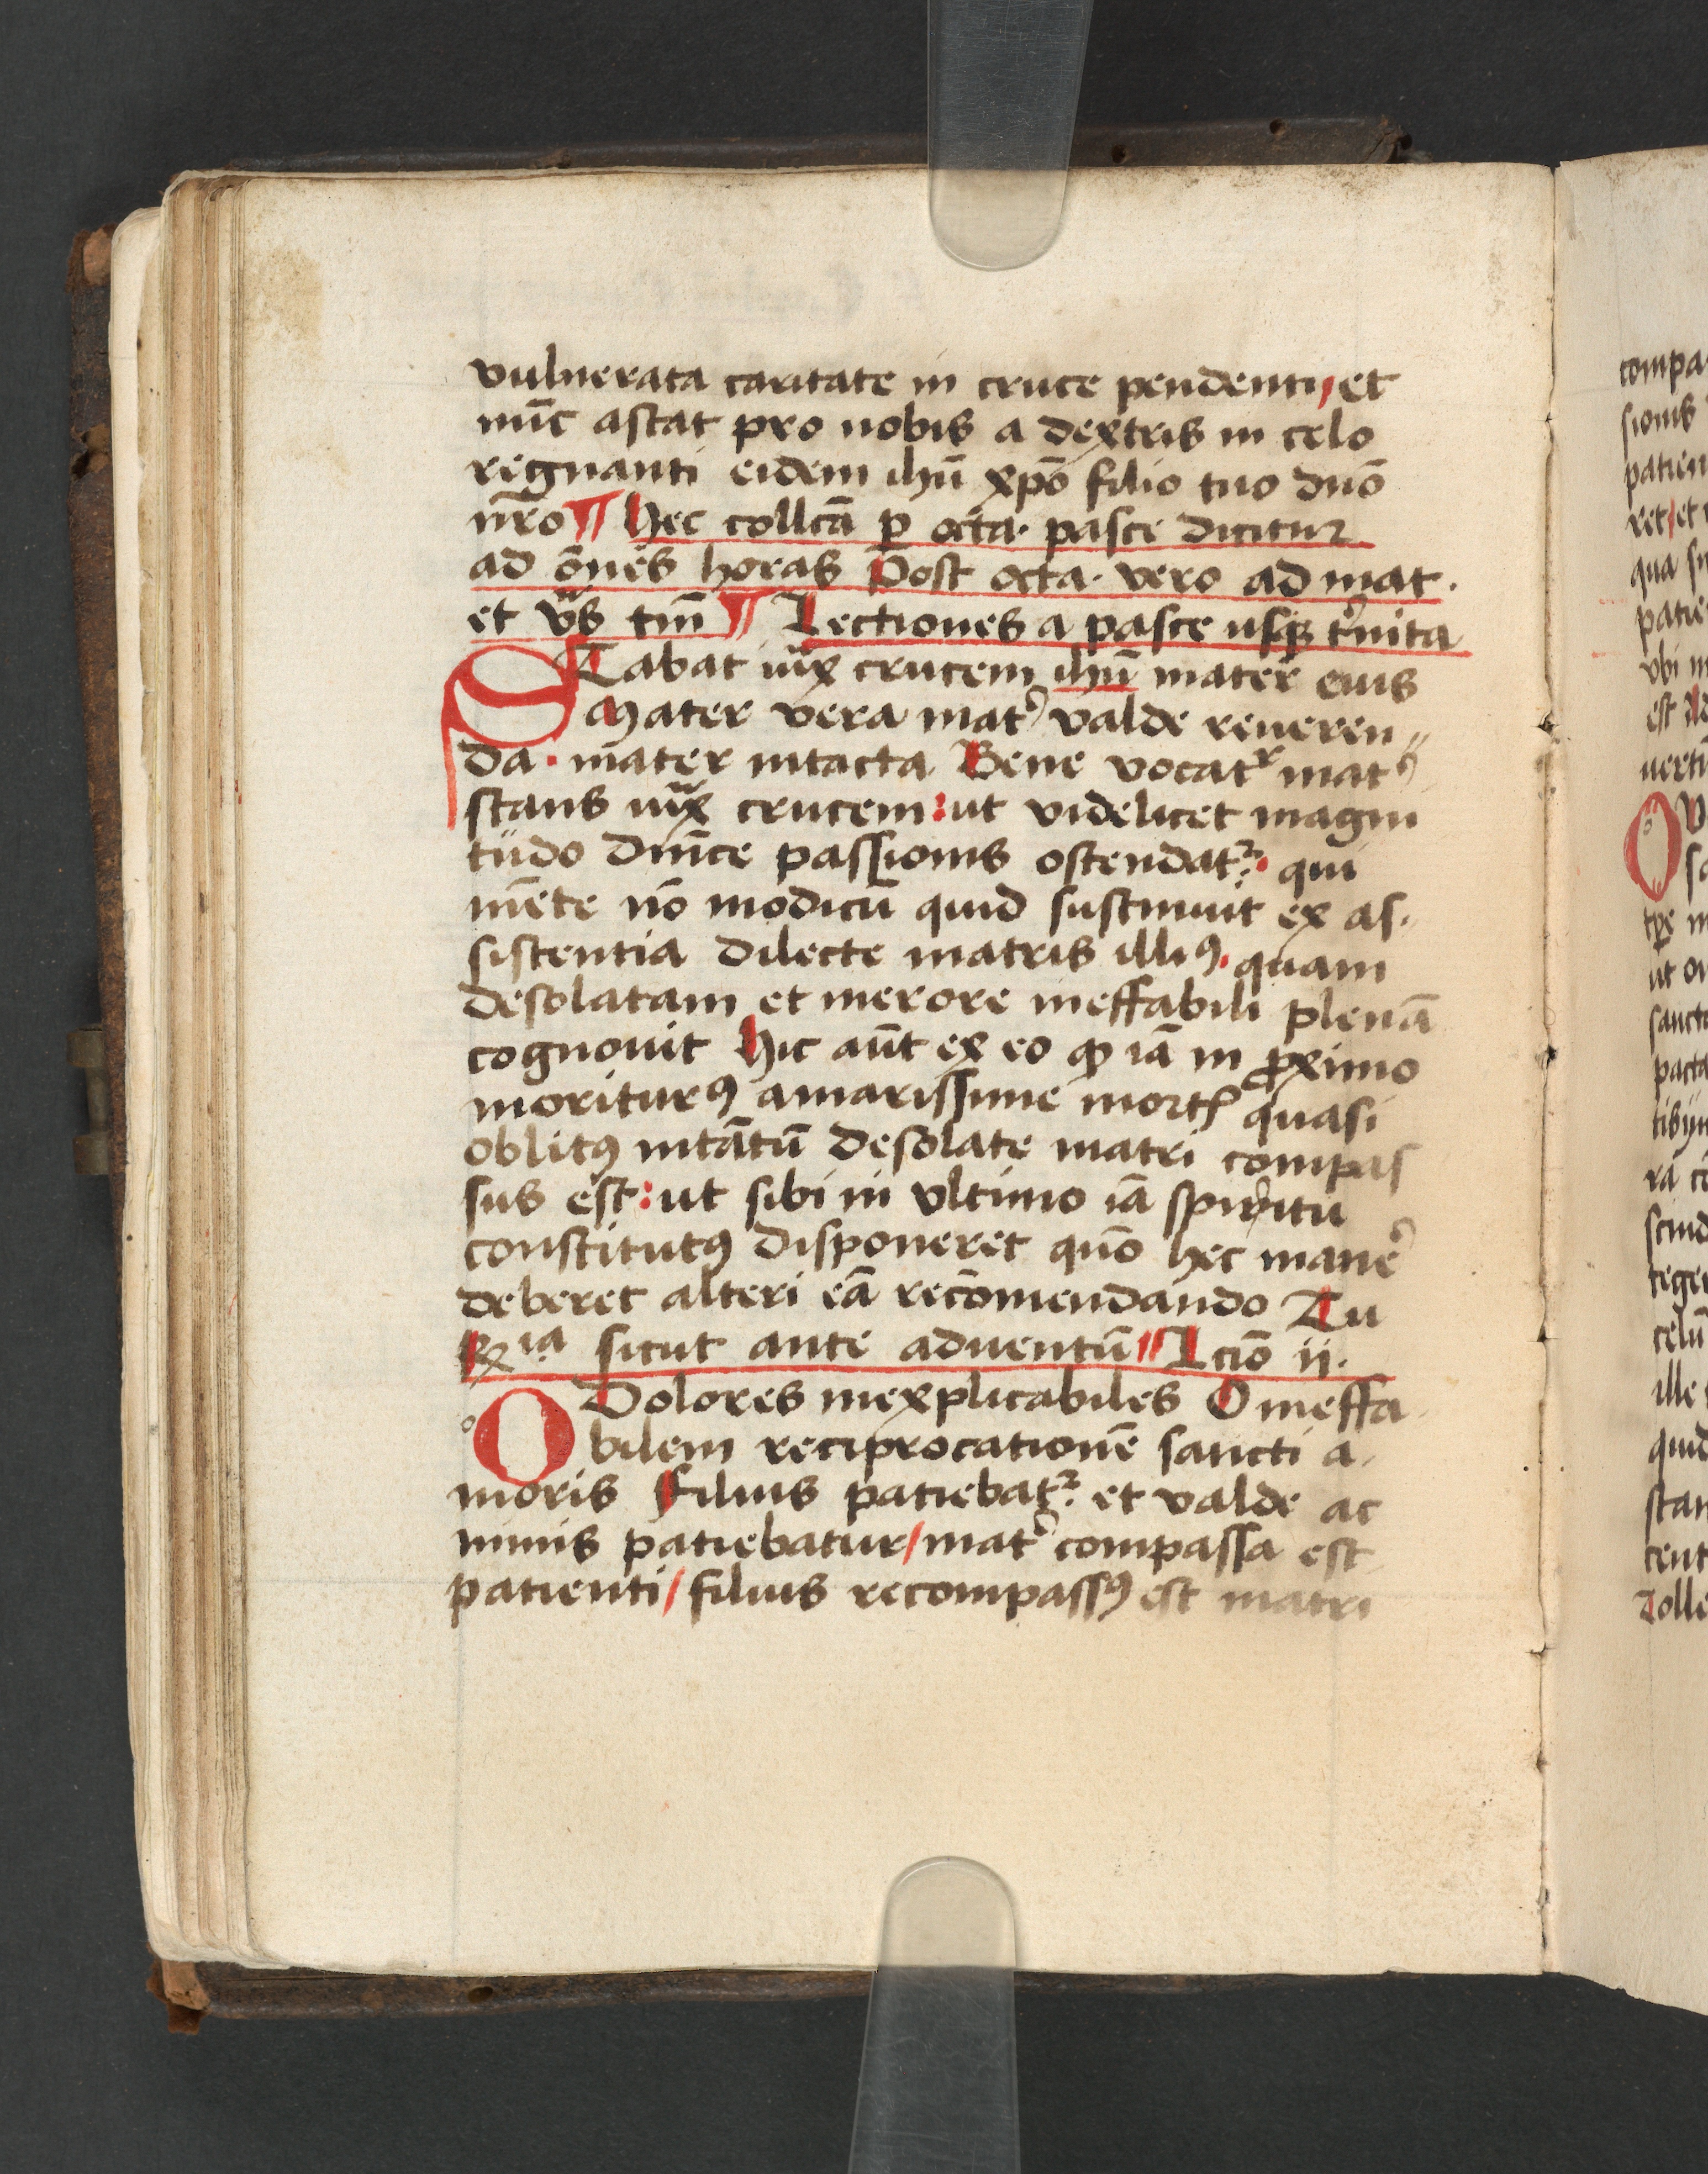 vulnerata caritate in cruce pendenti/ et
nūc astat pro nobis a dextris in celo
regnanti eidem ihū xpō filio tuo dnō
nr̄o ¶ Hec collcā ꝑ octa. pasce dicitur
ad ōnes horas Post octa. vero ad mat.
et vs̄ tm̄ ¶ Lectiones a pasce usqꝫ t'nita
STabat iux̄ crucem ihū mater eius
Mater vera mat' valde reueren„
da. mater intacta Bene vocatr mat'
stans iux̄ crucem: ut videlicet magni
tudo dnīce passionis ostendat᷑. qui
mēte nō modicū quid sustinuit ex as.
sistentia dilecte matris illiꝰ. quam
desolatam et merore ineffabili plenā
cognouit Hic aūt ex eo ꝙ iā in ꝓximo
moriturꝰ amarissime mortꝭ quasi
oblitꝰ intātū desolate matri compas
sus est: ut sibi in vltimo iā spiritu
constitutꝰ disponeret quō hec mane'
deberet alteri eā recōmendando Tu
℞ia sicut ante aduentū ¶ Lctō ii.
O Dolores inexplicabiles O ineffa
bilem reciprocationē sancti a.
moris Filius patiebat᷑. et valde ac
nimis patiebatur/ mat' compassa est
patienti/ filius recompassꝰ est matri
compa
sionis
patien
ret/ et
qua su
patie
vbi
est
uerti
O
tꝑe
ut
sancto
pacta
tibi
ra
scind
tege
celū
ille
quid
stan
cent
Tolle